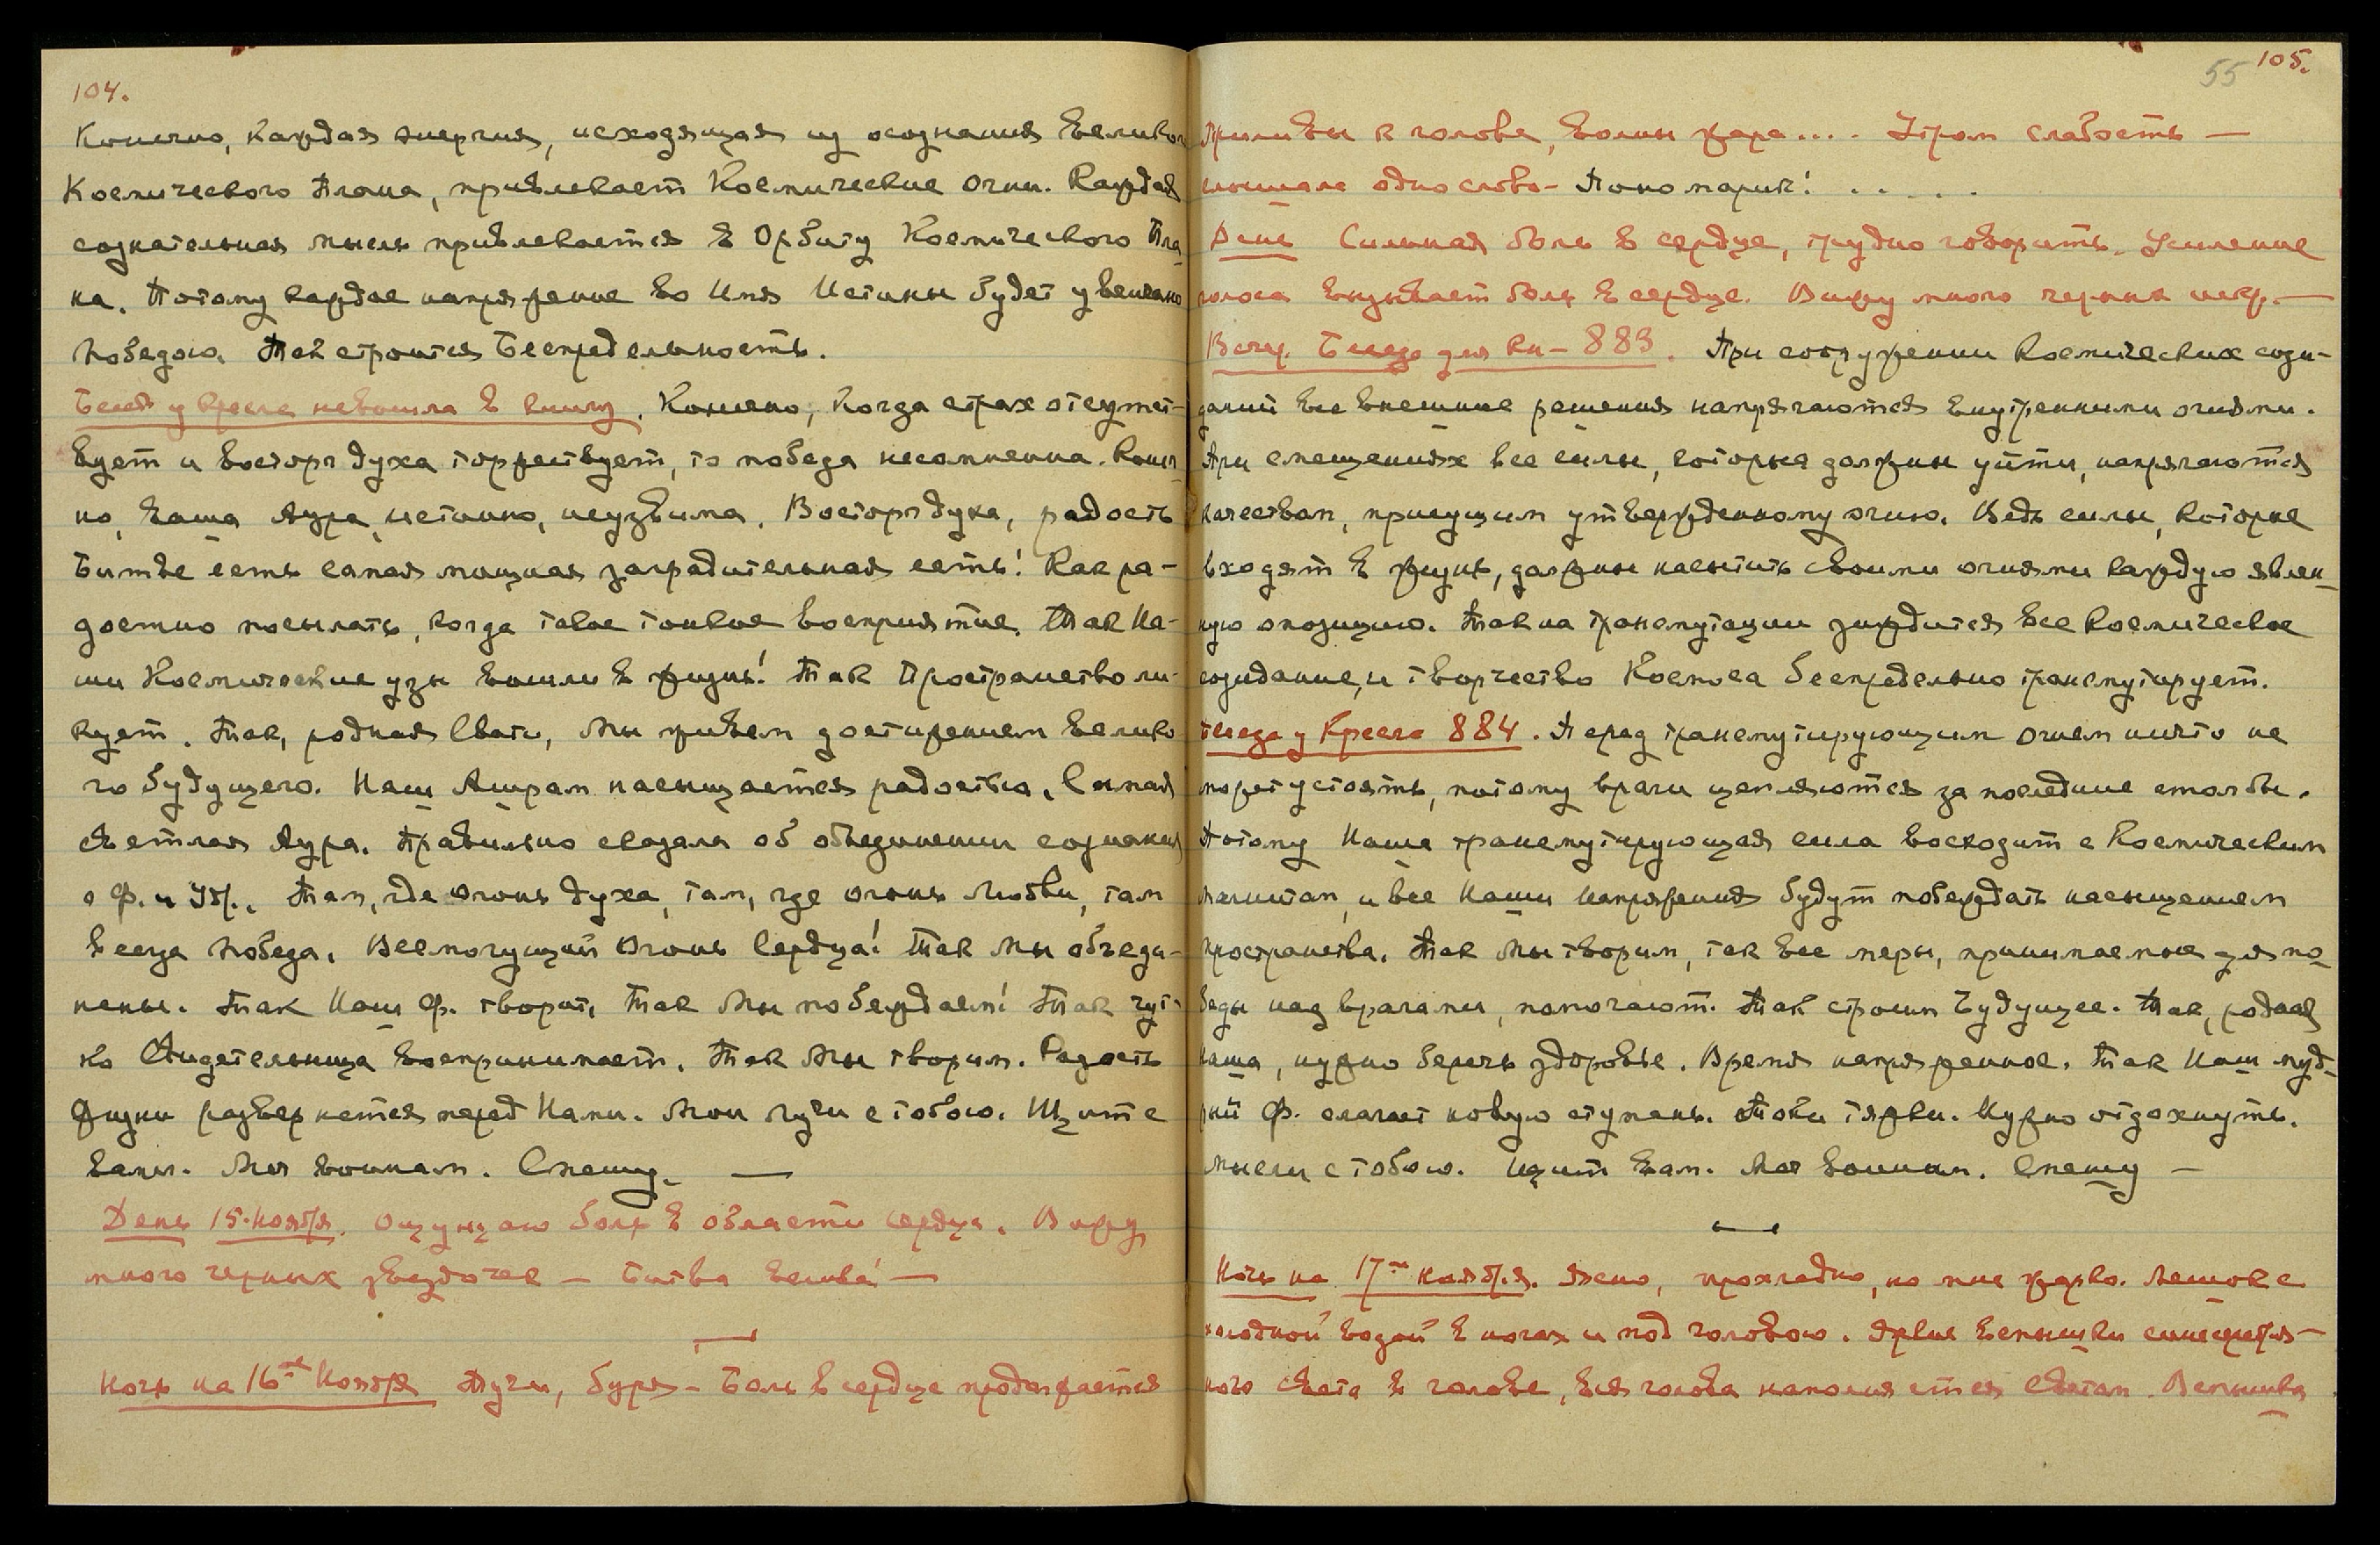 104.
Конечно, каждая энергия, исходящая из осознания Великого
Космического Плана, привлекает Космические огни. Каждая
сознательная мысль привлекается в Орбиту Космического Пла-
на. Потому каждое напряжение во Имя Истины будет увенчано
победою. Так строится Беспредельность.
Беседа у Кресла не вошла в книгу. Конечно, когда страх отсутст-
вует и восторг духа торжествует, то победа несомненна. Конеч-
но, ваша Аура, истинно, неуязвима. Восторг духа, радость
Битве есть самая мощная заградительная сеть! Как ра-
достно посылать, когда такое тонкое восприятие. Так На-
ши Космические узы вошли в жизнь! Так Пространство ли-
кует. Так, родная Свати, Мы живем достижением велико-
го будущего. Наш Ашрам насыщается радостью. Сильная
светлая Аура. Правильно сказала об объединении сознания
с Ф. и Уд. Там, где огонь духа, там, где огонь Любви, там
всегда победа. Всемогущий Огонь Сердца! Так Мы объеди-
нены. Так Наш Ф. творит. Так Мы побеждаем! Так чут-
ко Свидетельница воспринимает. Так Мы творим. Радость
жизни развернется перед Нами. Мои лучи с тобою. Щит с
вами. Мы воинам. Спешу. —
День 15. ноября. Ощущаю боль в области сердца. Вижу
много черных звездочек — Битва велика! —
Ночь на 16-ое Ноября Тучи, буря — Боль в сердце продолжается
55 105.
Приливы к голове, волны жара.... Утром слабость —
слышала одно слово — Пономарик! . . . .
День Сильная боль в сердце, трудно говорить. Усиление
голоса вызывает боль в сердце. Вижу много черных искр. —
Вечер. Беседа для кн — 883. При сооружении космических сози-
даний все внешние решения напрягаются внутренними огнями.
При смещениях все силы, которые должны уйти, напрягаются
качествам, присущим утвержденному огню. Ведь силы, которые
входят в жизнь, должны насытить своими огнями каждую явлен-
ную опозицию. Так на трансмутации зиждится все космическое
созидание, и творчество Космоса беспредельно трансмутирует.
Беседа у Кресла 884. Перед трансмутирующим огнем ничто не
может устоять, потому враги цепляются за последние столбы.
Потому Наша трансмутирующая сила восходит с Космическим
магнитом, и все Наши напряжения будут побеждать насыщением
пространства. Так Мы творим, так все меры, принимаемые для по-
беды над врагами, помогают. Так строим Будущее. Так, родная
Наша, нужно беречь здоровье. Время напряженное. Так Наш муд-
рый Ф. слагает новую ступень. Токи тяжки. Нужно отдохнуть.
Мысли с тобою. Щит вам. Мы воинам. Спешу —
Ночь на 17-ое ноября. Ясно, прохладно, но мне жарко. Мешок с
холодной водой в ногах и под головою. Яркие вспышки синесеребря-
ного света в голове, вся голова наполняется светом. Вспышка